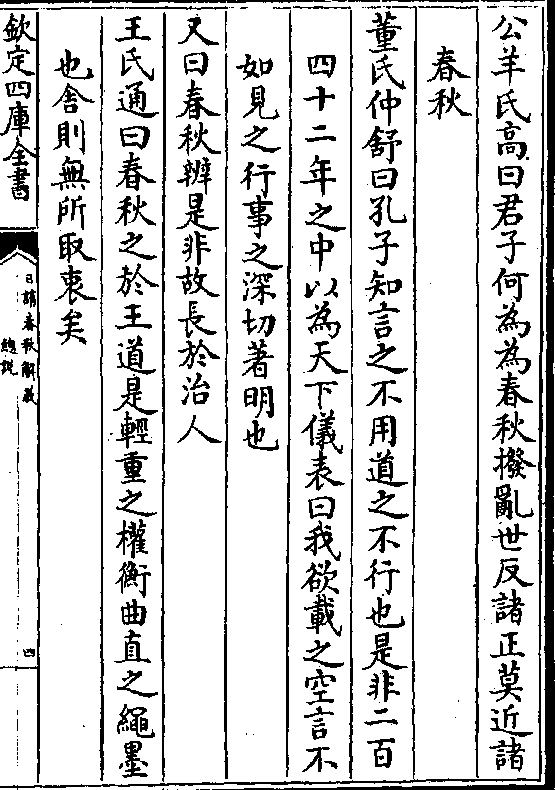 公羊氏高曰君子何為為春秋撥亂世反諸正莫近諸
春秋
董氏仲舒曰孔子知言之不用道之不行也是非二百
四十二年之中以為天下儀表曰我欲載之空言不
如見之行事之深切著明也
又曰春秋辨是非故長於治人
王氏通曰春秋之於王道是輕重之權衡曲直之繩墨
也舍則無所取衷矣
欽定四庫全書
日講春秋解義
總說
四